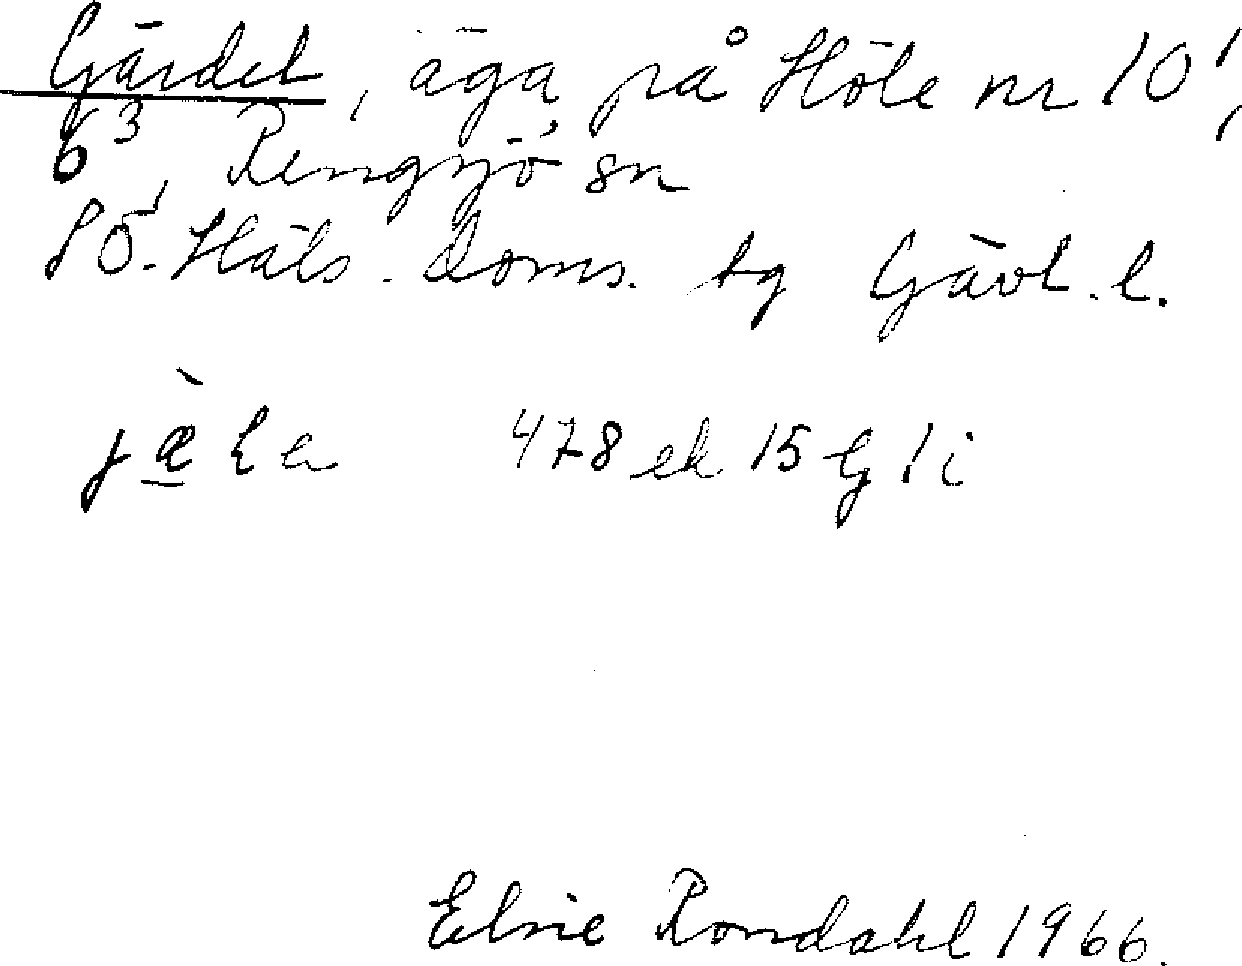 Gärdet, äga, på Höle nr 10¹,
6³, Rengsjö sn
SÖ. Häls. Doms. tg Gävl. l.
478 ek 15 G 1 i
Elsie Rondahl 1966.